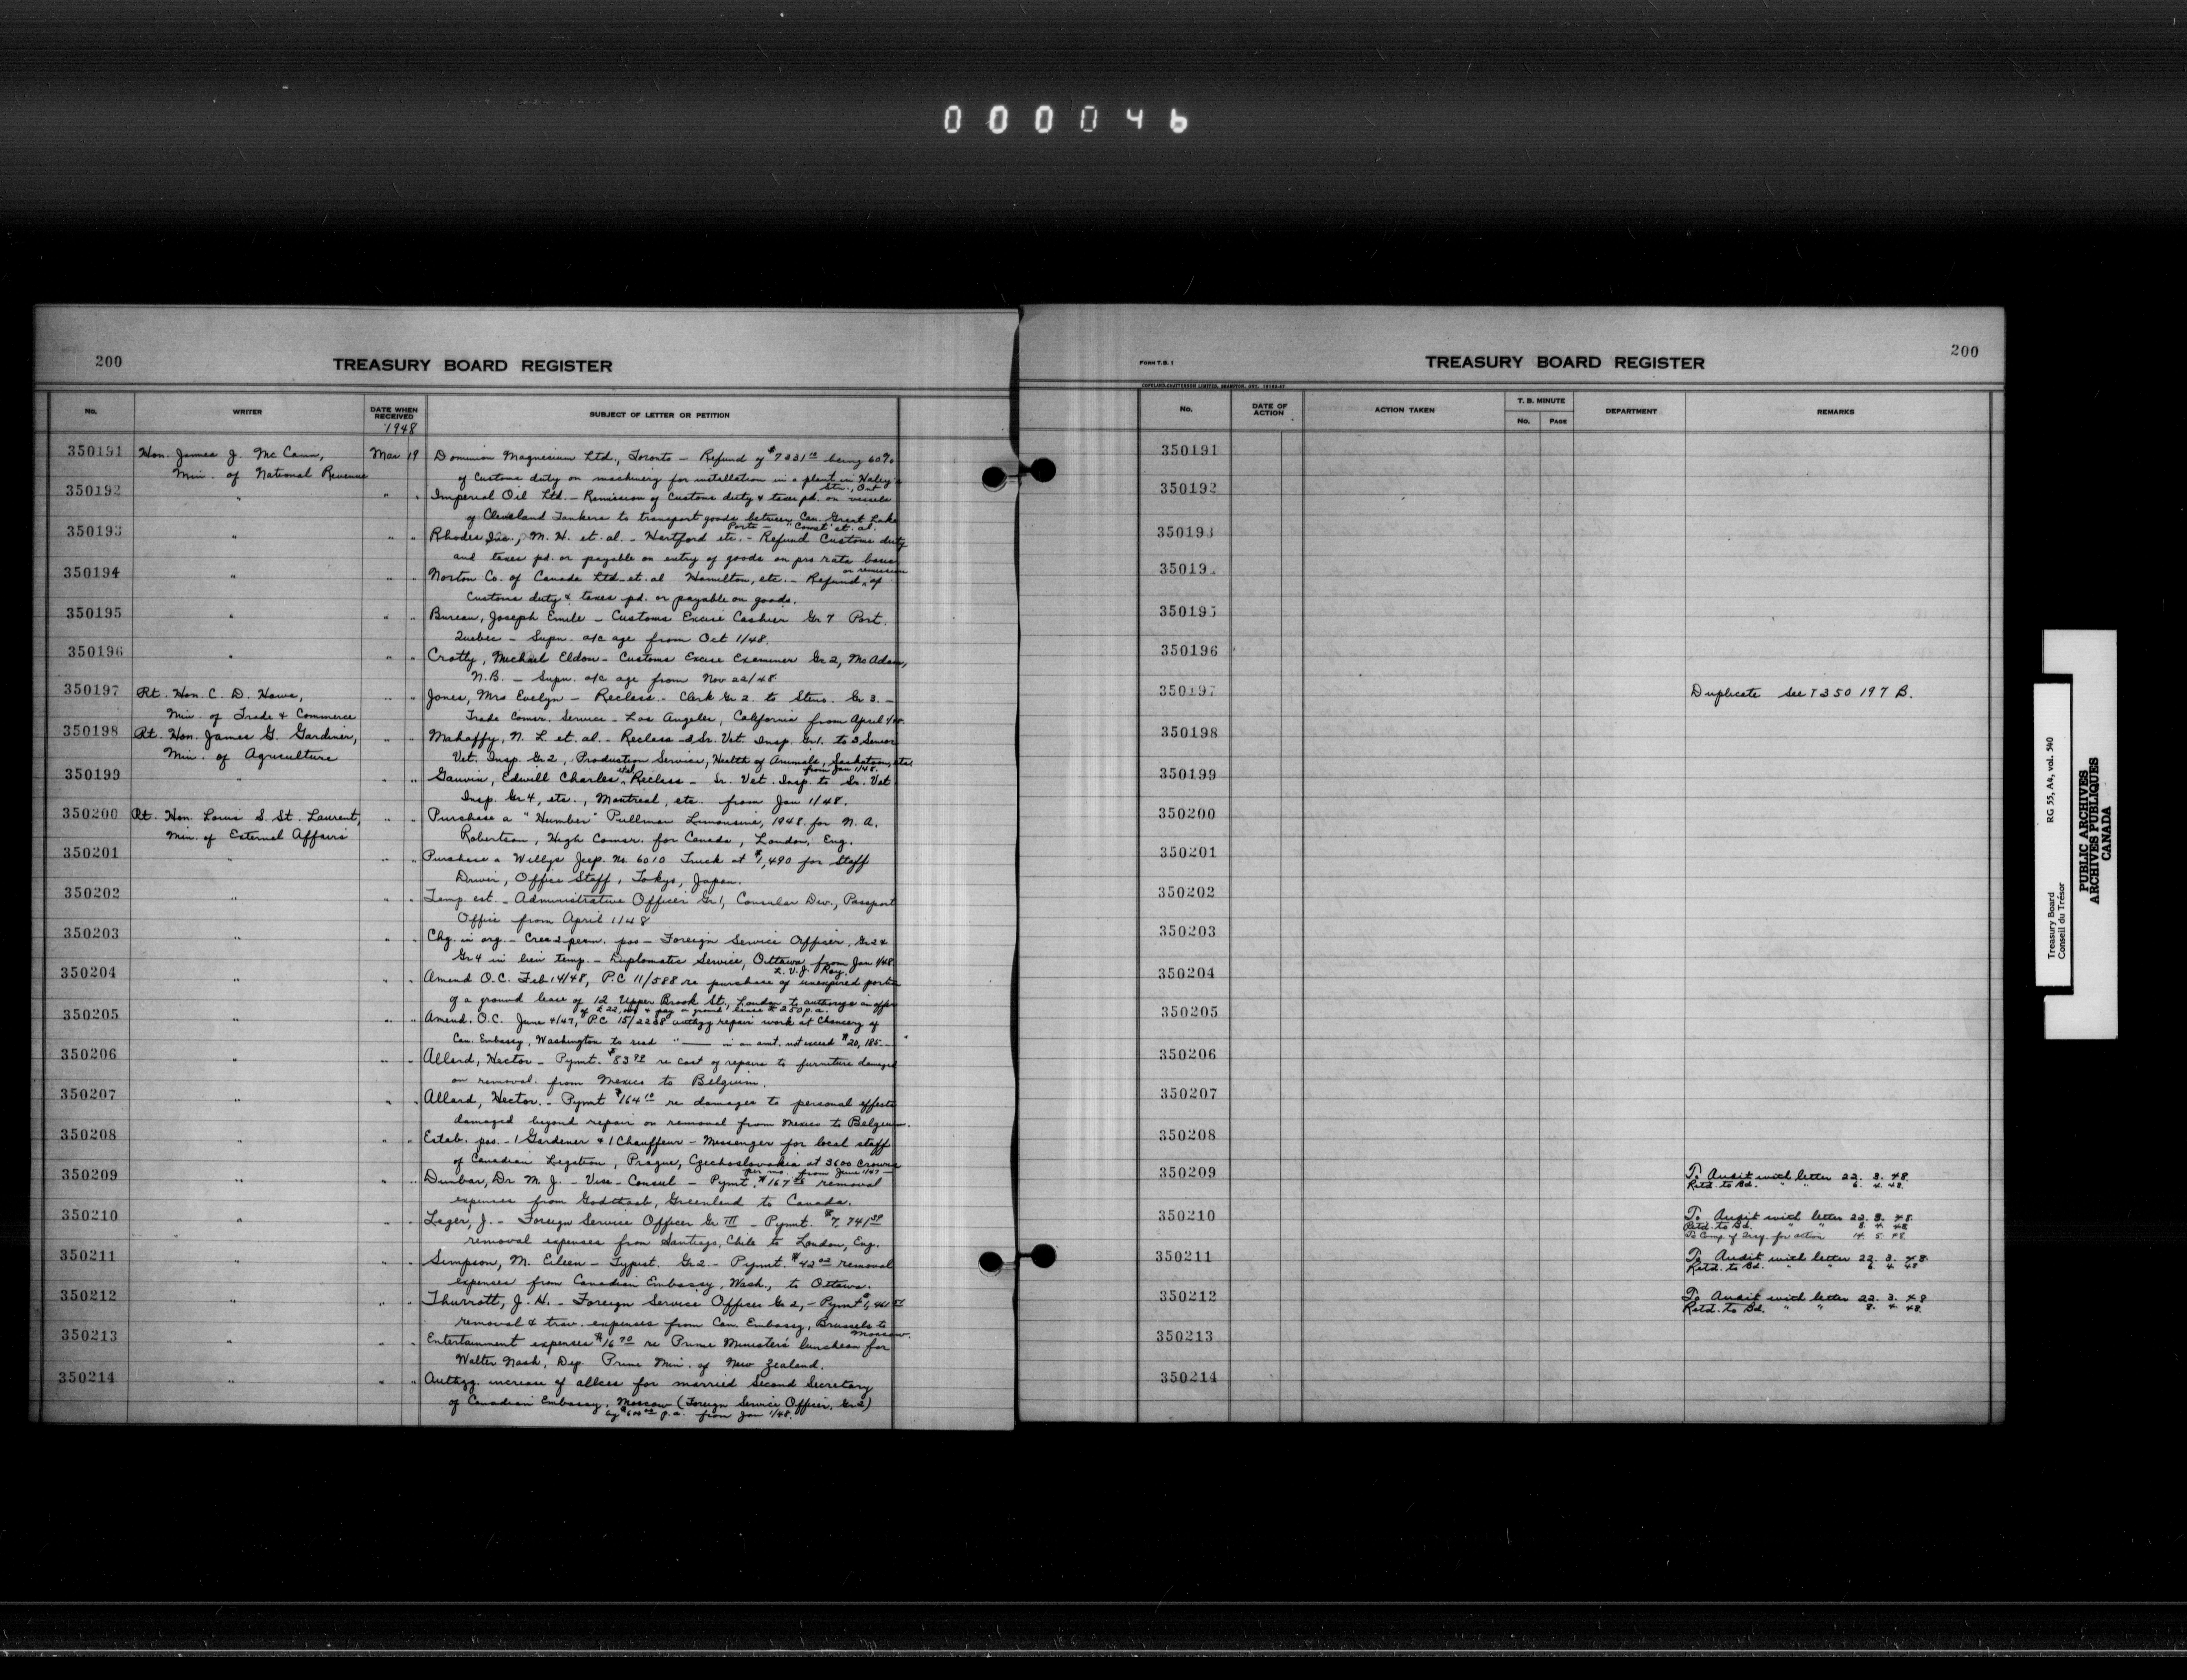 000046
200
TREASURY BOARD REGISTER
No. WRITER DATE WHEN RECEIVED SUBJECT OF LETTER OR PETITION
1948
350191 Hon. James J. McCann, Mar 19 Dominion Magnesium Ltd., Toronto — Refund of being 60%
Min. of National Revenue of Customs duty on machinery for installation in a plant in Haley's
Stn., Ont
350192 " " " Imperial Oil Ltd. — Remission of Customs duty & taxes pd. on vessels
of Cleveland Tankers to transport goods between Can. Great Lake
Ports — "Comet" et. al.
350193 " " Rhodes Inc., M. H. et. al. — Hartford etc. — Refund Customs duty
and taxes pd. or payable on entry of goods on pro rata basis
350194 " " " Norton Co. of Canada Ltd. et. al Hamilton, etc. — Refund or remission of
Customs duty & taxes pd. or payable on goods.
350195 " " " Bureau, Joseph Emile — Customs Excise Cashier Gr 7 Port.
Quebec — Supn. a/c age from Oct 1/48.
350196 " " " Crotty, Michael Eldon — Customs Excise Examiner Gr 2, McAdam,
N.B. — Supn. a/c age from Nov 22/48.
350197 Rt. Hon. C. D. Howe, " " Jones, Mrs Evelyn — Reclass. — Clerk Gr 2 to Steno. Gr 3. —
Min. of Trade & Commerce Trade Comsr. Service — Los Angeles, California from April 1/48.
350198 Rt. Hon. James G. Gardiner, " " Mahaffy, N. L et. al. — Reclass — 3 Sr. Vet. Insp. Gr 1. to 3 Senior
Min. of Agriculture Vet. Insp. Gr 2, Production Service, Health of Animals, Saskatoon, etc
from Jan 1/48.
350199 " " " Gauvin, Edwill Charles et al Reclass — Sr. Vet. Insp. to Sr. Vet
Insp. Gr 4, etc., Montreal, etc. from Jan 1/48.
350200 Rt. Hon. Louis S. St. Laurent, " " Purchase a "Humber" Pullman Limousine, 1948 for N. A.
Min. of External Affairs Robertson, High Comsr. for Canada, London, Eng.
350201 " " " Purchase a Willys Jeep. No. 6010 Truck at $1,490 for Staff
Driver, Office Staff, Tokyo, Japan.
350202 " " " Temp. est. — Administrative Officer Gr 1, Consular Div., Passport
Office from April 1/48
350203 " " " Chg. in org. — Crea 2 perm. pos — Foreign Service Officer, Gr 2 &
Gr 4 in lieu temp. — Diplomatic Service, Ottawa, from Jan 1/48.
L. V. J. Roy.
350204 " " " Amend O.C. Feb 14/48, P.C 11/588 re purchase of unexpired portion
of a ground lease of 12 Upper Brook St., London to authorize an offer
of £22,000 & pay a ground lease £250 p.a.
350205 " " " Amend. O.C. June 4/47, P.C 15/2238 authzg repair work at Chancery of
Can. Embassy, Washington to read "—— in an amt. not exceed $20,185 — "
350206 " " " Allard, Hector — Pymt. re cost of repairs to furniture damaged
on removal. from Mexico to Belgium.
350207 " " " Allard, Hector. — Pymt $164 10 re damages to personal effects
damaged beyond repair on removal from Mexico to Belgium.
350208 " " " Estab. pos. — 1 Gardener & 1 Chauffeur — Messenger for local staff
of Canadian Legation, Prague, Czechoslovakia at 3600 Crowns
per mo. from June 1/47 —
350209 " " " Dunbar, Dr M. J. — Vice-Consul — Pymt. removal
expenses from Godthaab, Greenland to Canada.
350210 " " " Leger, J. — Foreign Service Officer Gr III — Pymt.
removal expenses from Santiago, Chile to London, Eng.
350211 " " " Simpson, M. Eileen — Typist. Gr 2 — Pymt. removal
expenses from Canadian Embassy, Wash., to Ottawa.
350212 " " " Thurrott, J. H. — Foreign Service Officer Gr 2, — Pymt
removal & trav. expenses from Can. Embassy, Brussels to
Moscow.
350213 " " " Entertainment expenses re Prime Minister's luncheon for
Walter Nash, Dep. Prime Min. of New Zealand.
350214 " " " Authzg. increase of allces for married Second Secretary
of Canadian Embassy, Moscow (Foreign Service Officer, Gr 2)
by p.a. from Jan 1/48.
FORM T.B. 1
TREASURY BOARD REGISTER
200
COPELAND-CHATTERSON LIMITED, BRAMPTON, ONT.
No. DATE OF ACTION ACTION TAKEN T. B. MINUTE No. PAGE DEPARTMENT REMARKS
350191
350192
350193
35019
350195
350196
350197 Duplicate See T350197B.
350198
350199
350200
350201
350202
350203
350204
350205
350206
350207
350208
350209 To Audit with letter 22. 3. 48.
Retd. to Bd. " " 6. 4. 48.
350210 To Audit with letter 22. 3. 48.
Retd. to Bd. " " 8. 4. 48.
To Comp. of Treas. for action 14. 5. 48.
350211 To Audit with letter 22. 3. 48.
Retd. to Bd. " " 6. 4. 48
350212 To Audit with letter 22. 3. 48
Retd. to Bd. " " 8. 4. 48.
350213
350214
Treasury Board RG 55, A4, vol. 540
Conseil du Trésor
PUBLIC ARCHIVES
ARCHIVES PUBLIQUES
CANADA